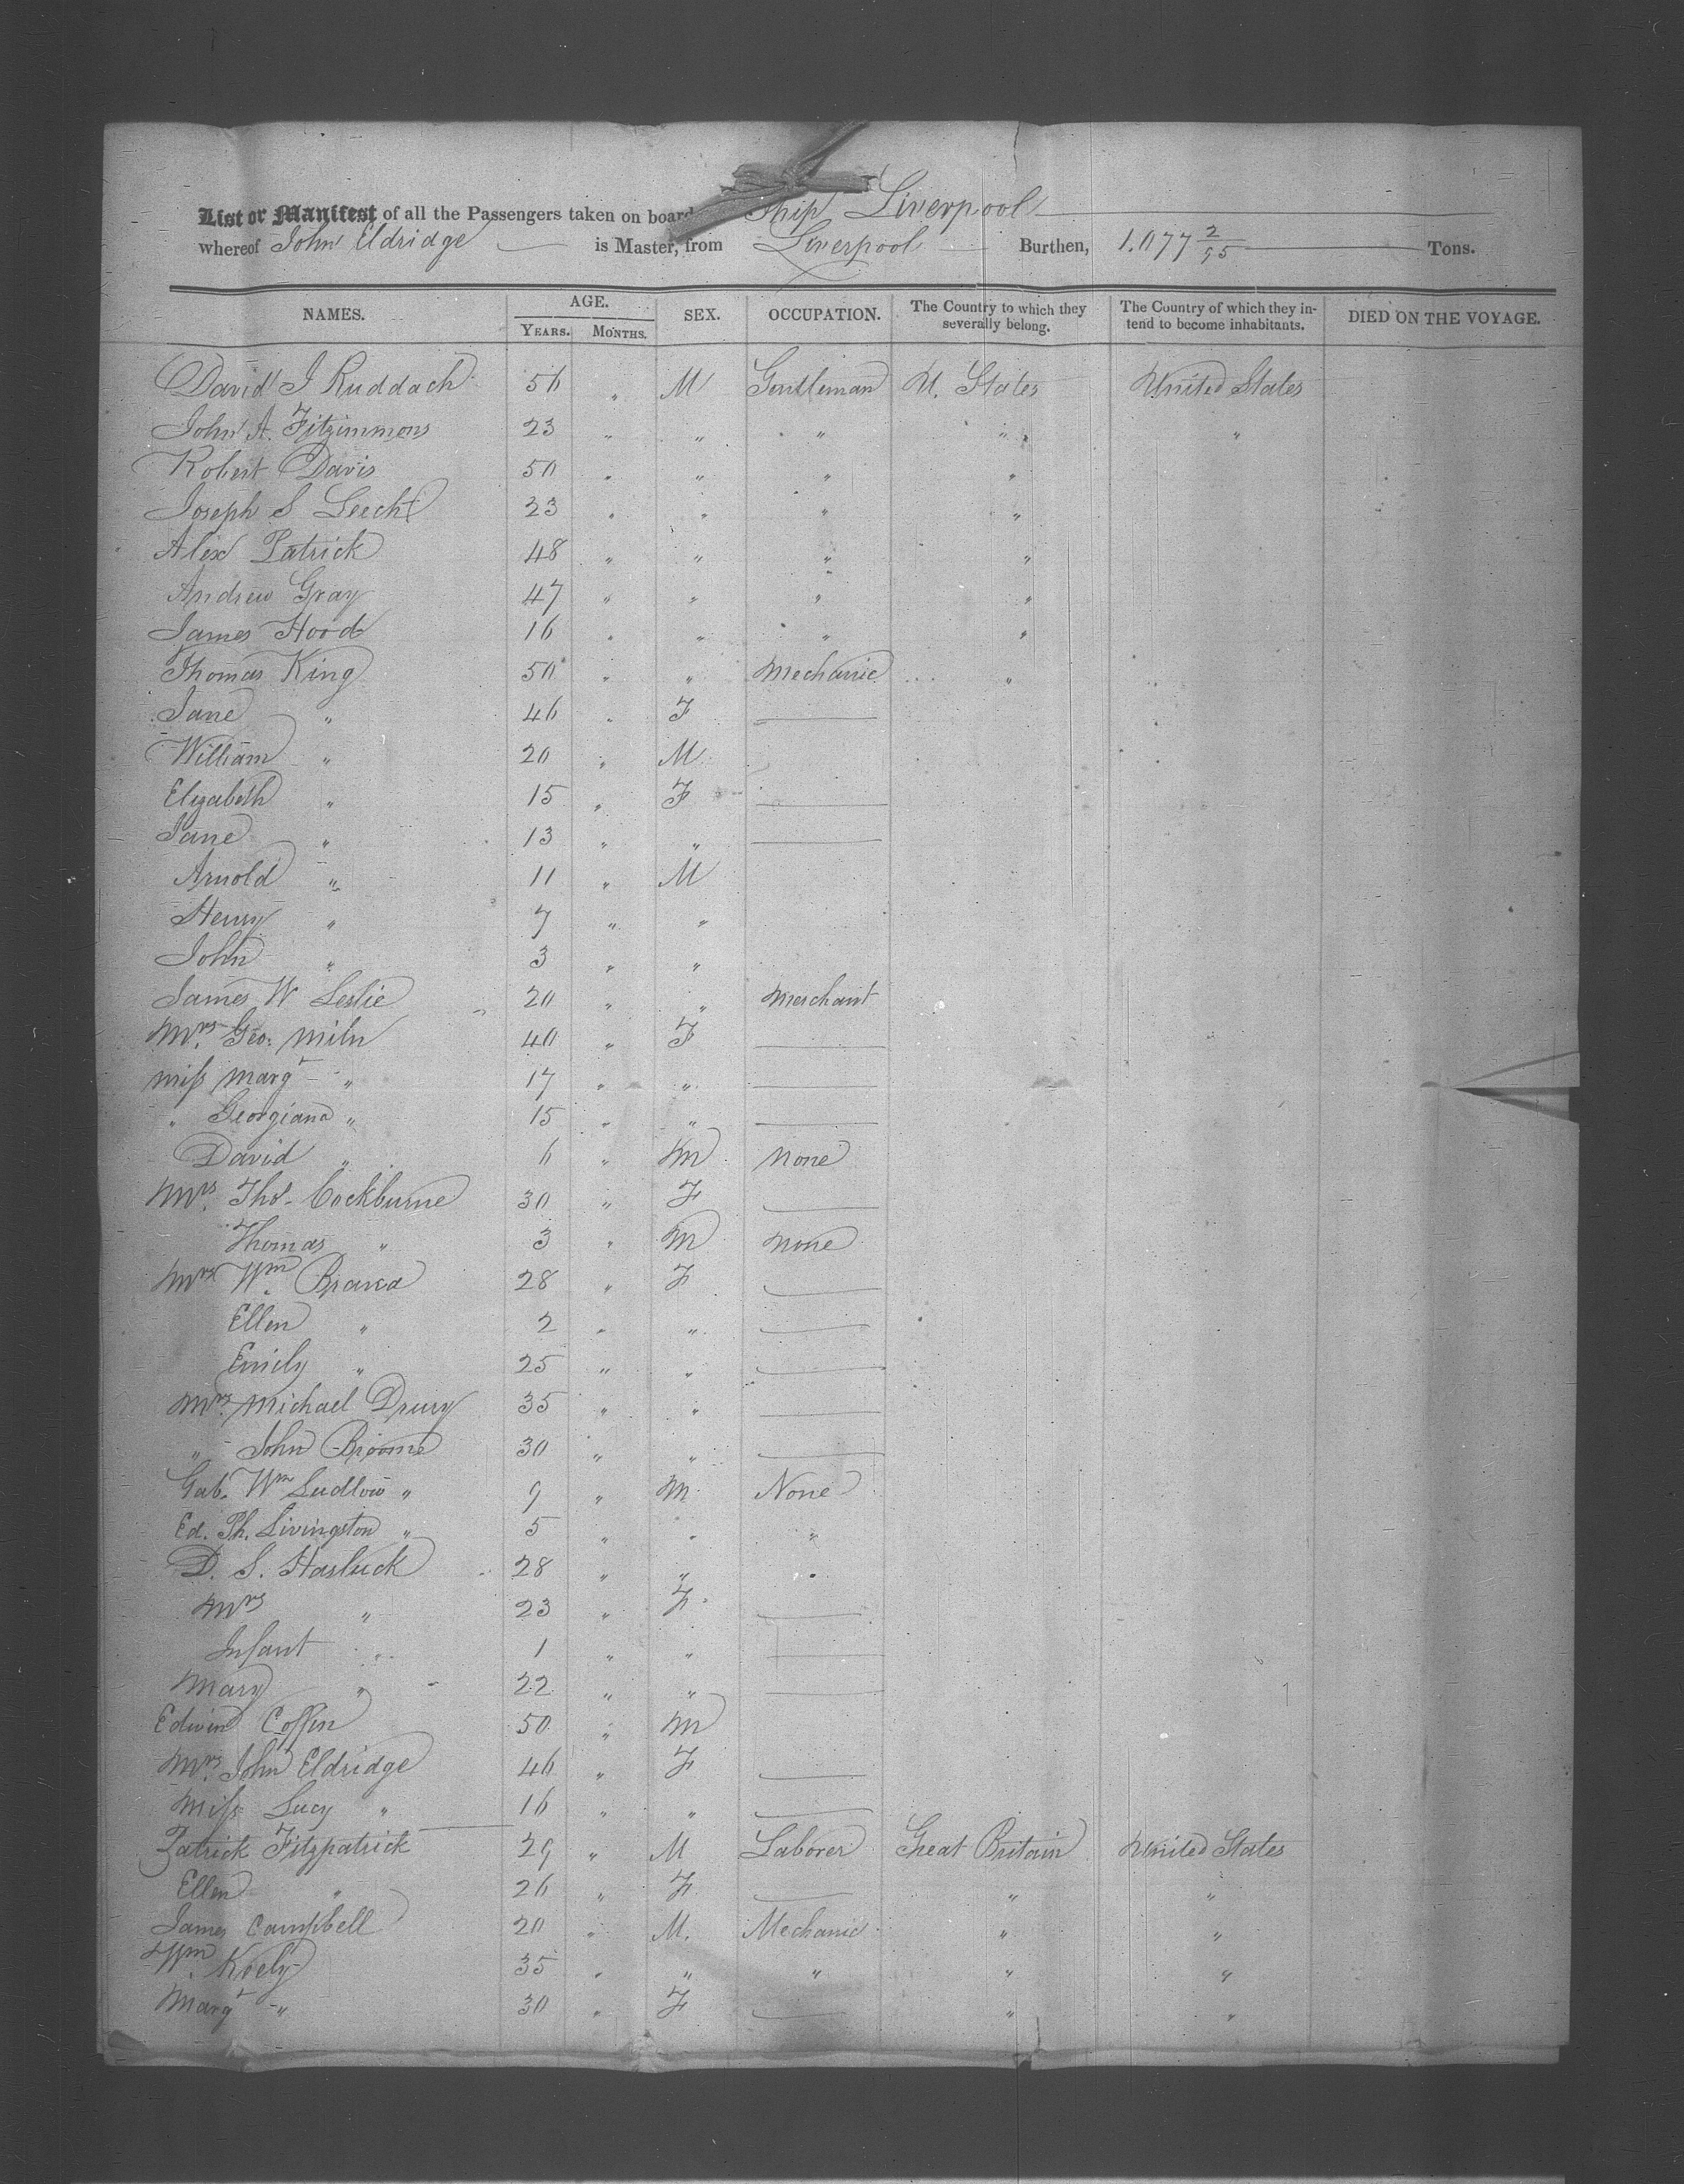 List or Manifest of all the Passengers taken on board Ship Liverpool
whereof John Eldridge is Master, from Liverpool Burthen, 1.077 2/95 Tons.
NAMES. AGE. YEARS. MONTHS. SEX. OCCUPATION. The Country to which they severally belong. The Country of which they intend to become inhabitants. DIED ON THE VOYAGE.
David J Ruddach 56 " M Gentleman U. States United States
John A. Fitzimmons 23 " " " " "
Robert Davis 50 " " " "
Joseph S Leech 23 " " " "
Alex Patrick 48 " " " "
Andrew Gray 47 " " " "
James Hood 16 " " " "
Thomas King 50 " " Mechanic "
Jane " 46 " F
William " 20 " M
Elizabeth " 15 " F
Jane " 13 " "
Arnold " 11 " M
Henry " 7 " "
John " 3 " "
James W Leslie 20 " " Merchant
Mrs. Geo: Miln 40 " F
Miss Margt " 17 " "
" Georgiana " 15 " "
David " 6 " M none
Mrs. Thos. Cockburne 30 " F
Thomas " 3 " M none
Mrs Wm. 28 " F
Ellen " 2 " "
Emily " 25 " "
Mrs. Michael Drury 35 " "
" John Broome 30 " "
Gab. Wm Ludlow " 9 " M None
Ed. Ph. Livingston " 5 " " "
D. S. Hasluck 28 " " "
Mrs " 23 " F
Infant " 1 " "
Mary " 22 " "
Edwin Coffin 50 " M
Mrs. John Eldridge 46 " F
Miss Lucy " 16 " "
Patrick Fitzpatrick 29 " M Laborer Great Britain United States
Ellen " 26 " F " "
James Campbell 20 " M. Mechanic " "
Wm. Keely 35 " " " " "
Margt " 30 " F " "